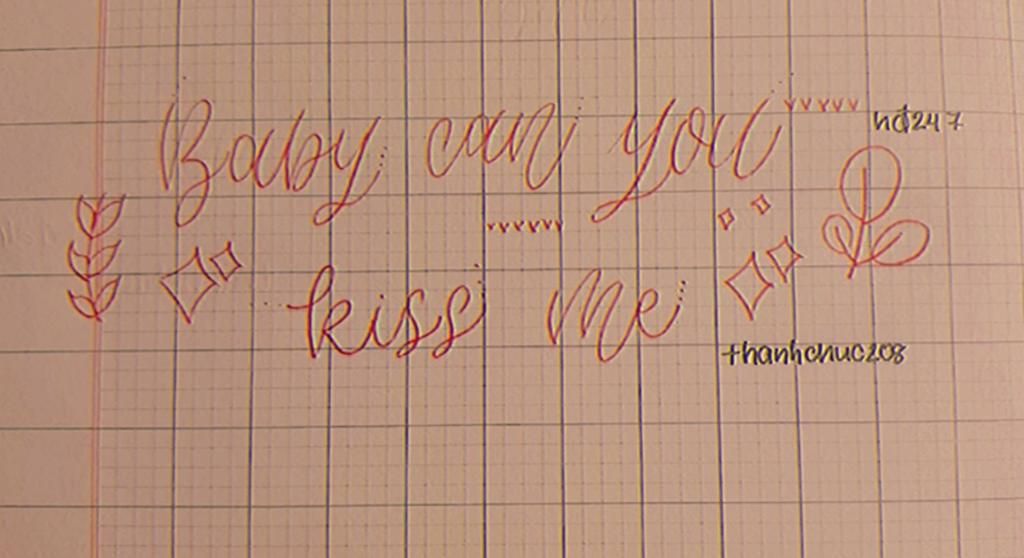 Baby can you
hd247
kiss me
thanhchuc208